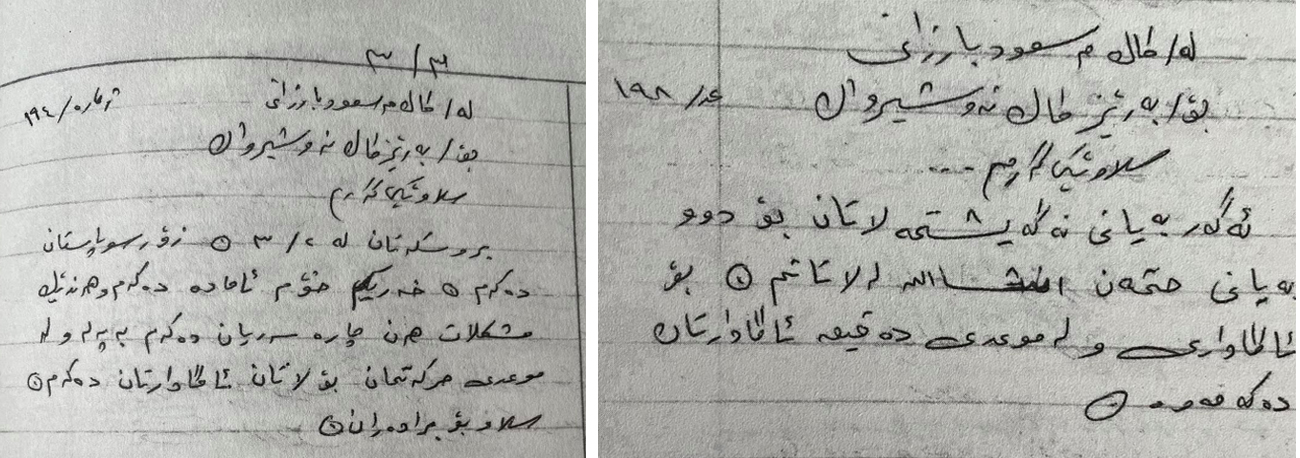 ٣/٣
لە/ کاک مەسعود بارزانی
ژمارە/ ١٩٤
بۆ/ بەڕێز کاک نەوشیروان
سلاوێکی گەرم
بروسکەتان لە ٣/٢ زۆر سوپاستان
دەکەم ⊙ خەریکم خۆم ئامادە دەکەم وهەندێک
مشکلات هەن چارە سەریان دەکەم بە پەلە و لە
موعدی حرکەتمان بۆ لاتان ئاگادارتان دەکەم ⊙
سلاو بۆ برادەران ⊙
لە/ کاک مەسعود بارزانی
بۆ/ بەڕێز کاک نەوشیروان
عدد/ ١٩٨
سلاوێکی گەرم ...
ئەگەر بەیانی نەگەیشتمە لاتان بۆ دوو
بەیانی حتمەن انشاالله لە لاتانم ⊙ بۆ
ئاگاداری و لە موعدی دەقیقە ئاگادارتان
دەکەمەوە ⊙